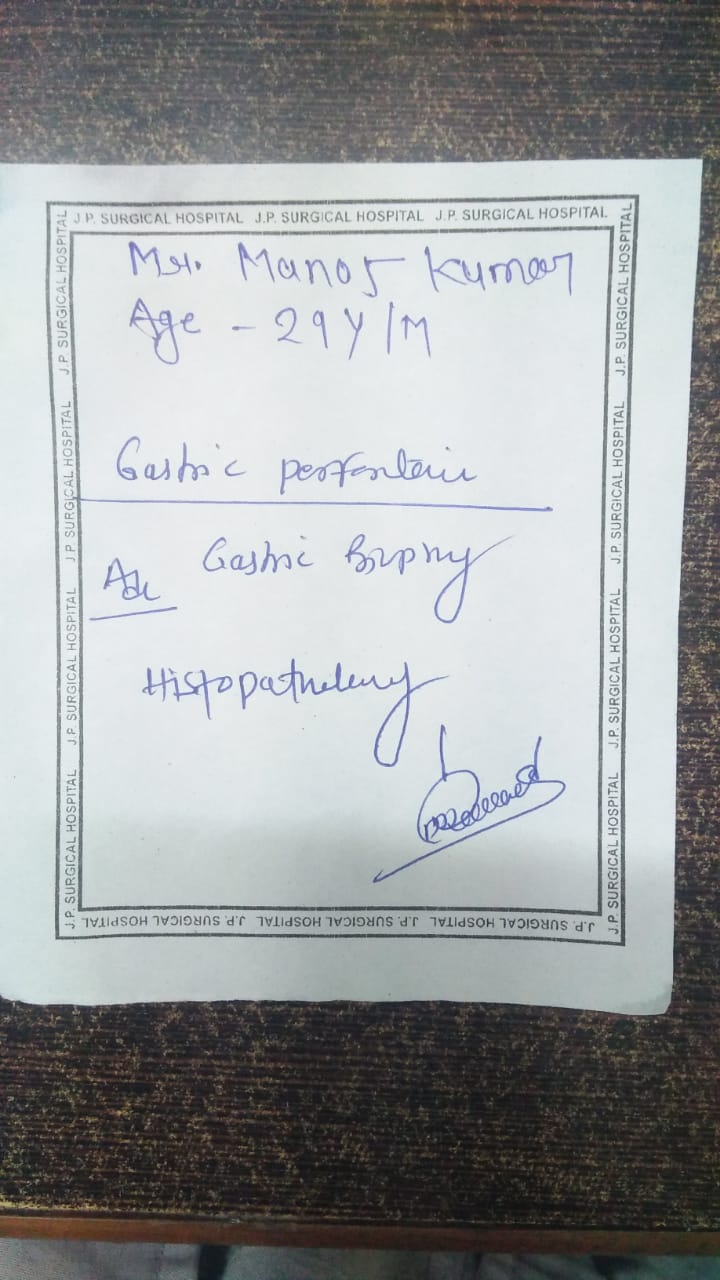 J.P. SURGICAL HOSPITAL J.P. SURGICAL HOSPITAL J.P. SURGICAL HOSPITAL
Mr. Manoj Kumar
Age - 29 Y/M
Gastric perforation
Adv Gastric Biopsy
Histopathology
J.P. SURGICAL HOSPITAL J.P. SURGICAL HOSPITAL J.P. SURGICAL HOSPITAL
J.P. SURGICAL HOSPITAL J.P. SURGICAL HOSPITAL J.P. SURGICAL HOSPITAL J.P. SURGICAL HOSPITAL
J.P. SURGICAL HOSPITAL J.P. SURGICAL HOSPITAL J.P. SURGICAL HOSPITAL J.P. SURGICAL HOSPITAL